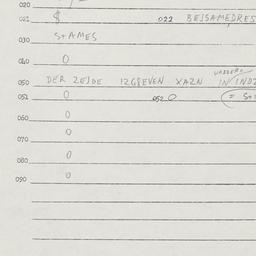 020
021 $ 022 BEJSAMEDRES
030 S+AMES
040 0
050 DER ZEJDE IZGEVEN XAZN IN IND
051 0 052 0 (= S+
060 0
0
070
0
080
0
090